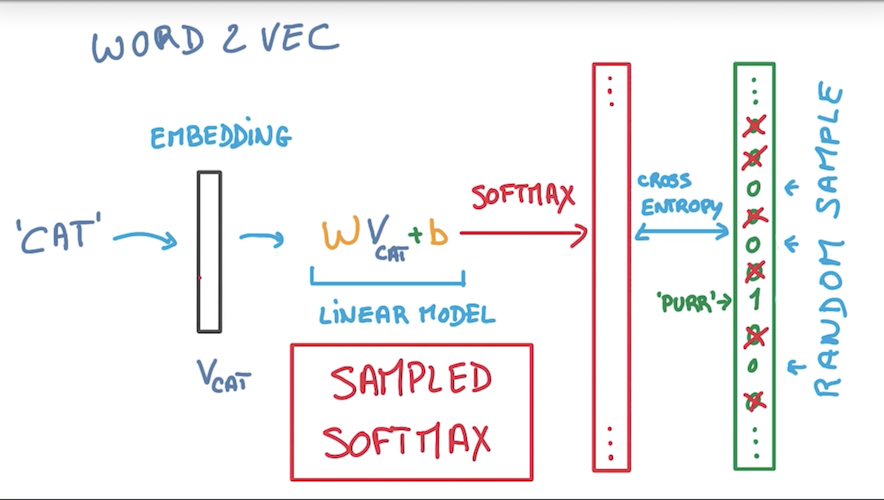 WORD 2 VEC
EMBEDDING
'CAT'
V CAT
W V CAT + b
LINEAR MODEL
SOFTMAX
SAMPLED
SOFTMAX
CROSS
ENTROPY
'PURR'
0
0
0
0
0
0
1
0
0
0
RANDOM SAMPLE